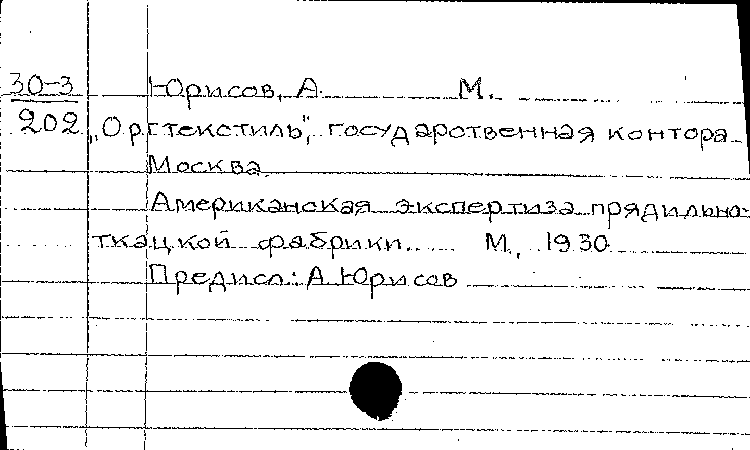 30-3 Юрисов, А. М.
202 „Оргтекстиль", государственная контора.
Москва.
Американская экспертиза прядильно-
ткацкой фабрики. М., 1930
Предисл.: А. Юрисов